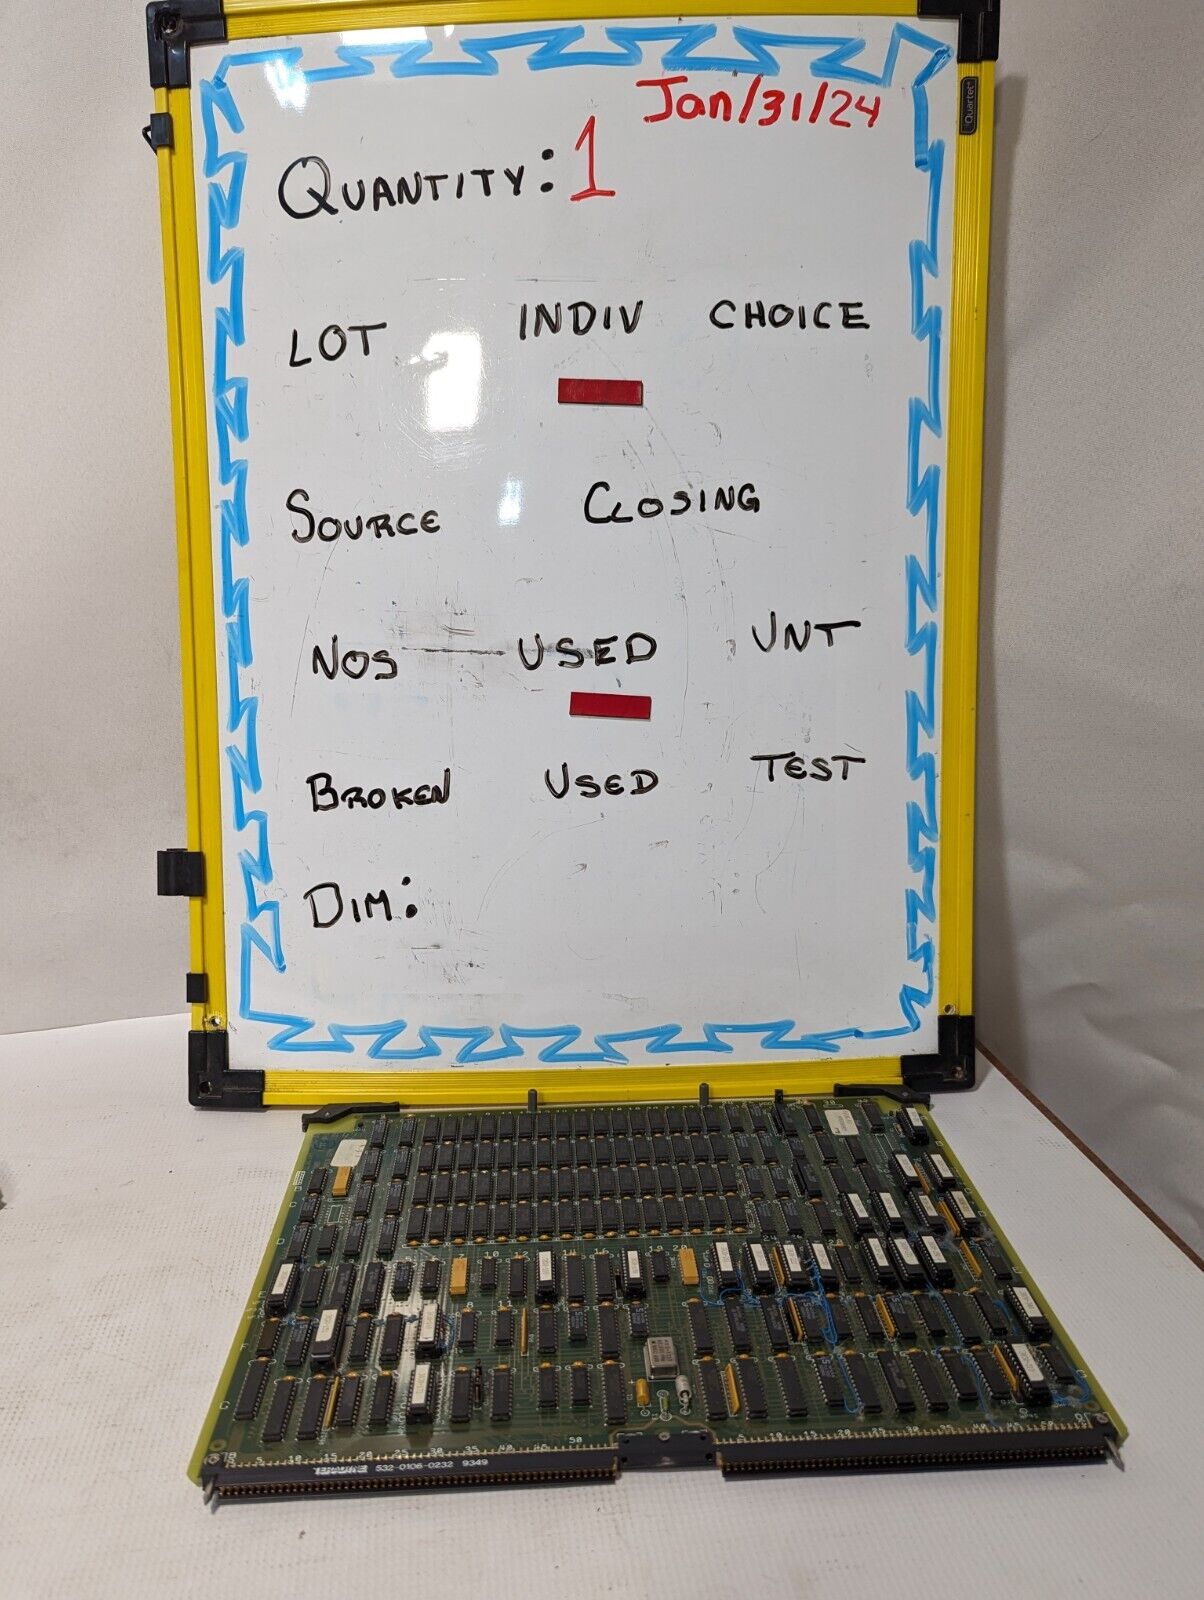 Jan/31/24
Quartet
QUANTITY: 1
LOT INDIV CHOICE
SOURCE CLOSING
NOS USED UNT
BROKEN USED TEST
DIM:
5 10 15 20 25 30 35 40 45 50
532-0106-0232 9349